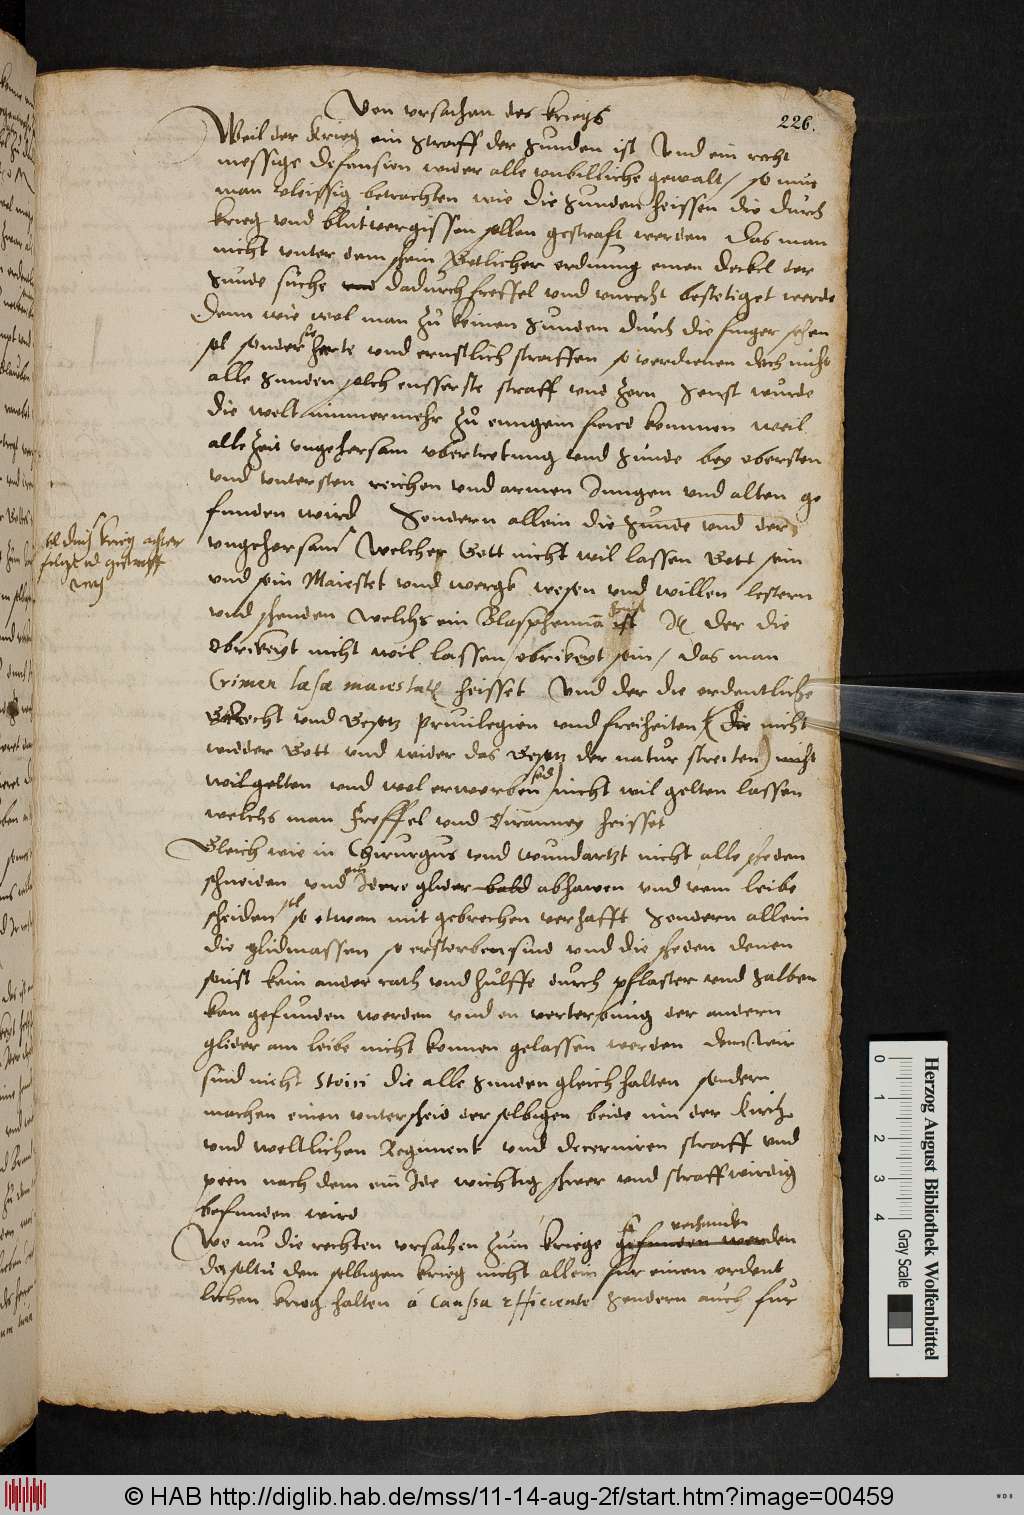 Von vrsachen des kriegs
226.
Weil der Krieg ein straff der sunden ist Vnd ein recht
messige defension wider alle vnbilliche gewalt / so mus
man vleissig betrachten wie die sunden heissen die durch
krieg vnd blutvergissen sollen gestraft werden Das man
nicht vnter dem schein Gotlicher ordnung einen deckel der
sunde suche vnd dadurch freffel vnd vnrecht bestetiget werde
Denn wie wol man zu keinen sunden durch die finger sehen
sol sonder sie herte vnd ernstlich straffen so verdienen doch nicht
alle sunden solch eusserste straff vnd zorn Sonst wurde
die welt nimmermehr zu einigem fried komen weil
alle Zeit vngehorsam vbertretung vnd sunde bey obersten
vnd vntersten reichen vnd armen Jungen vnd alten ge
funden wird Sondern allein die sunde vnd der
vngehorsam Welcher Gott nicht wil lassen Gott sein
krieg
vnd sein Maiestet vnd werck wesen vnd willen lestern
vnd schenden Welchs ein Blasphemia ist Jt der die
obrikeyt nicht wil lassen obrikeyt sein / das man
Crimen lasæ maiestatis heisset Vnd der die ordentliche
Gerecht vnd Gesetz priuilegien vnd freiheiten (die nicht
widder Gott vnd wider das Gesetz der natur streiten) nicht
wil gelten vnd wol erworben sind nicht wil gelten lassen
welchs man Freffel vnd Tiranney heisset
Gleich wie in Chirurgus vnd wundartzt nicht alle scheden
schneiden vnd ein Idere glider bald abhawen vnd vom leibe
scheiden sol so etwan mit gebrechen verhafft Sondern allein
die glidmassen so erstorben sind vnd die scheden denen
sonst kein ander rath vnd hulffe durch pflaster vnd salben
kan gefunden werden vnd on verterbung der andern
glider am leibe nicht konnen gelassen werden denn wir
sind nicht Stoici die alle sunden gleich halten sondern
machen einen vnterscheid derselbigen beide inn der Kirch
vnd weltlichen Regiment vnd decerniren straff vnd
peen nach dem ein Ide wichtig schwer vnd straffwirdig
befunden wird
Wo nu die rechten vrsachen zum kriege gefunden werden
verhanden
den selbigen krieg nicht allein fur einen ordent
lichen krieg halten a causa efficiente sondern auch fur
0 1 2 3 4
Herzog August Bibliothek Wolfenbüttel
Gray Scale
© HAB http://diglib.hab.de/mss/11-14-aug-2f/start.htm?image=00459